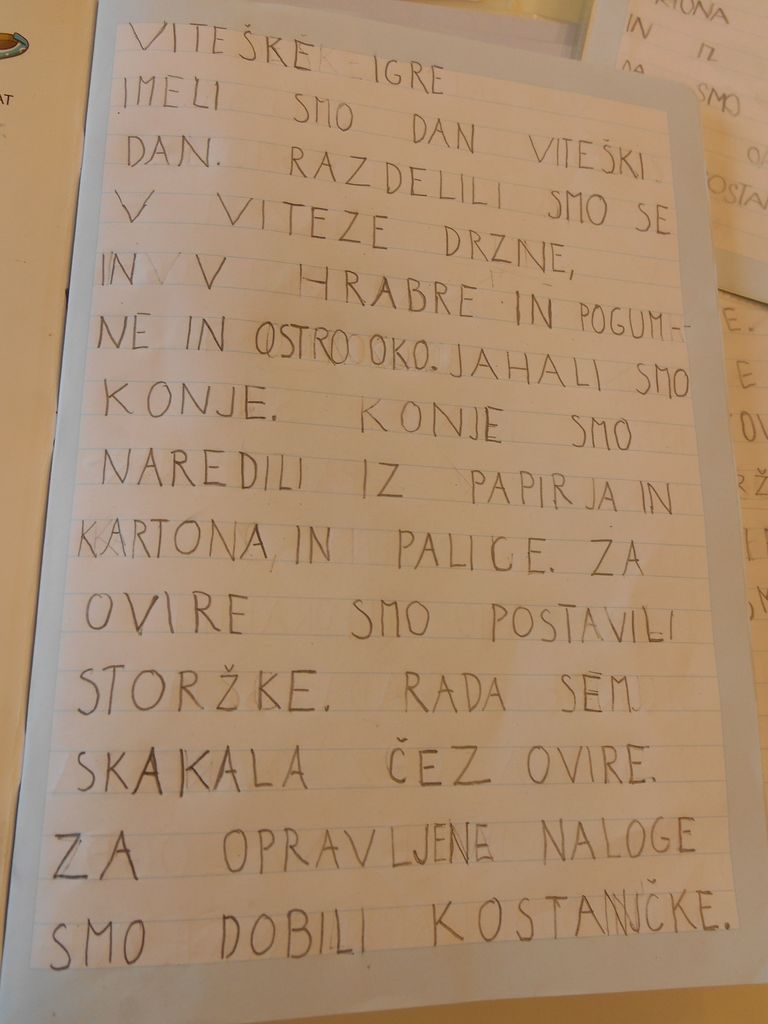 VITEŠKE IGRE
IMELI SMO DAN VITEŠKI
DAN. RAZDELILI SMO SE
V VITEZE DRZNE,
IN V HRABRE IN POGUM-
NE IN OSTRO OKO. JAHALI SMO
KONJE. KONJE SMO
NAREDILI IZ PAPIRJA IN
KARTONA, IN PALICE. ZA
OVIRE SMO POSTAVILI
STORŽKE. RADA SEM
SKAKALA ČEZ OVIRE.
ZA OPRAVLJENE NALOGE
SMO DOBILI KOSTANJČKE.
IN IZ
SMO
AT